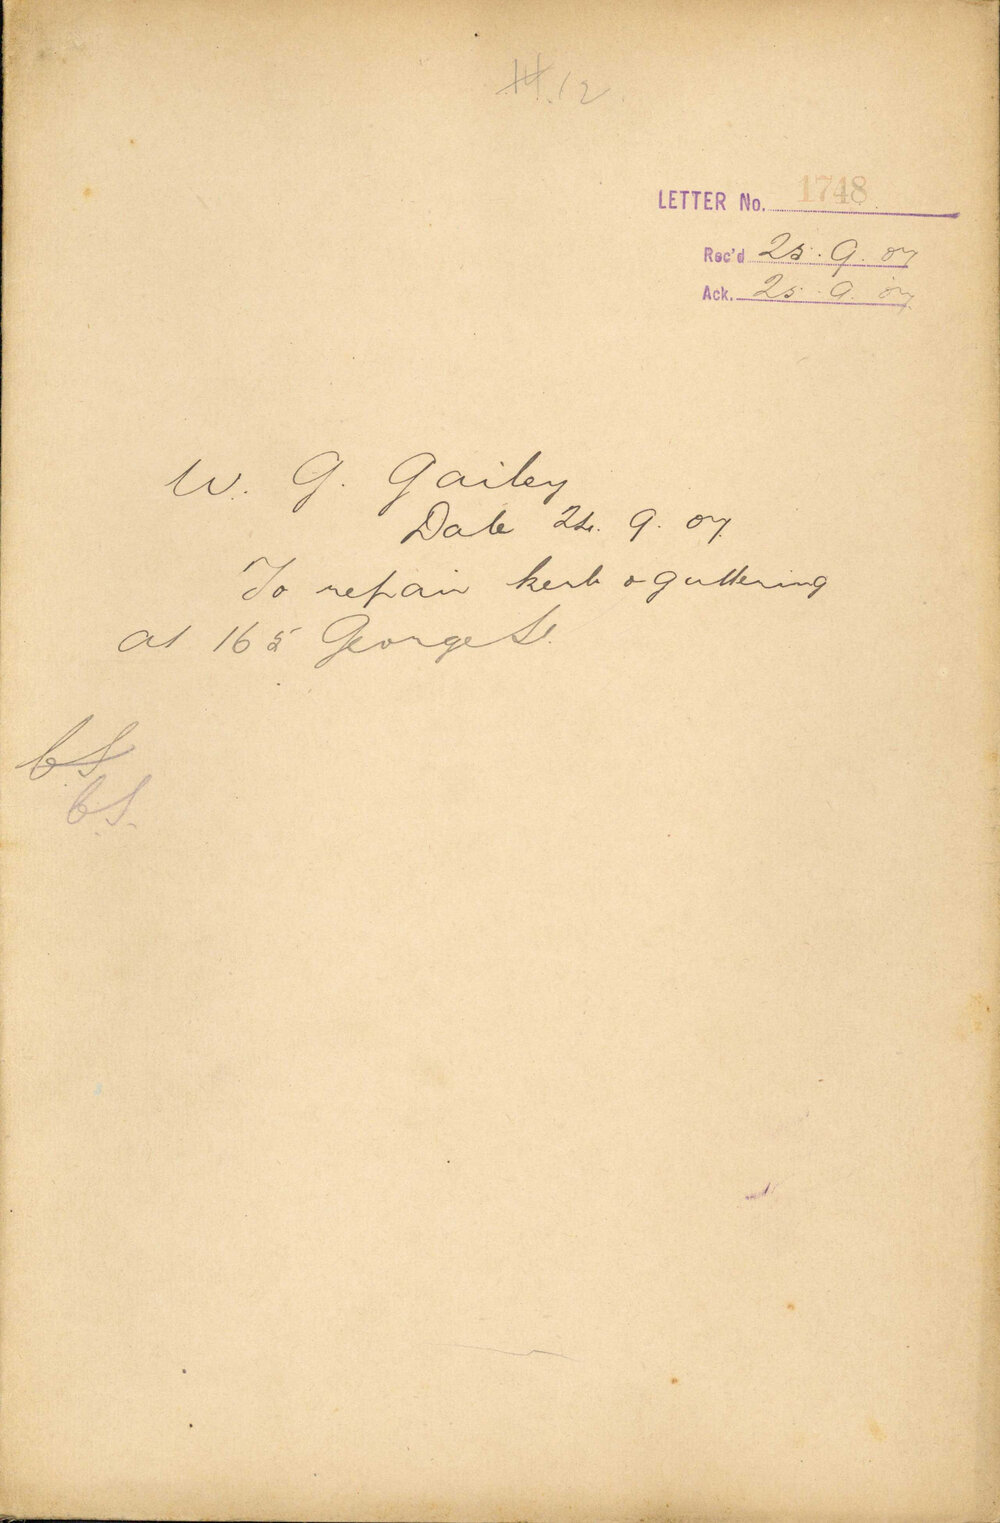 H.12
LETTER No. 1748
Rec'd 25.9.07
Ack. 25.9.07
W. G. Gailey
Date 24.9.07
To repair kerb & guttering
at 165 George St.
CS
C.S.